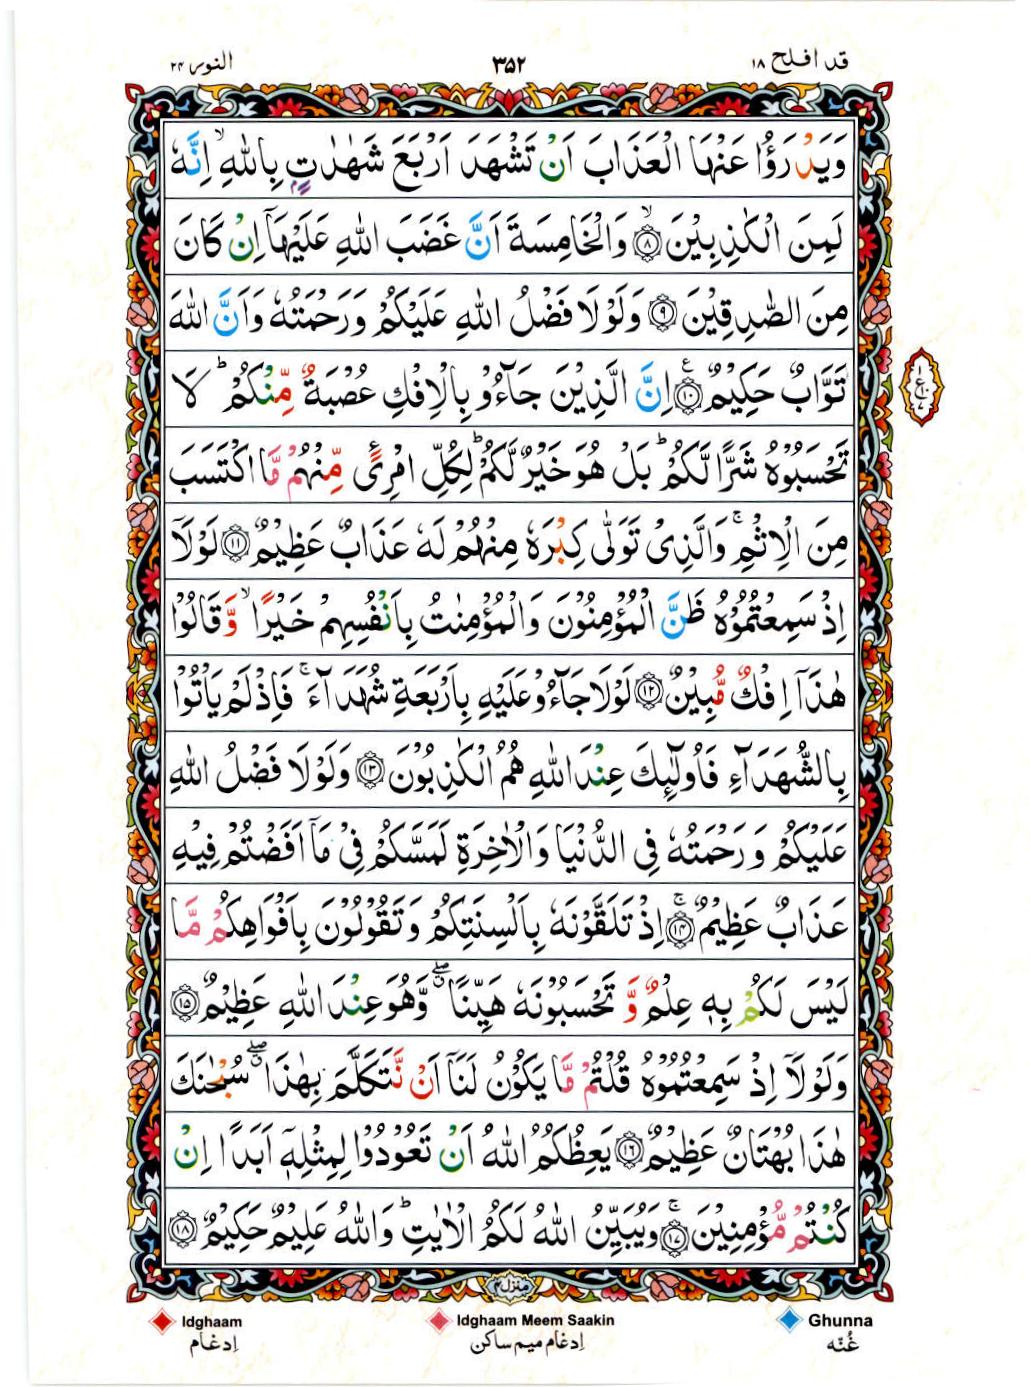 قد افلح ١٨ ٣٥٢ النور ٢٤
وَيَدْرَؤُا عَنْهَا الْعَذَابَ اَنْ تَشْهَدَ اَرْبَعَ شَهٰدٰتٍۭ بِاللّٰهِ ۙ اِنَّهٗ
لَمِنَ الْكٰذِبِيْنَ ۙ‏﴿۸﴾ وَالْخَامِسَةَ اَنَّ غَضَبَ اللّٰهِ عَلَيْهَاۤ اِنْ كَانَ
مِنَ الصّٰدِقِيْنَ ﴿۹﴾ وَلَوْلَا فَضْلُ اللّٰهِ عَلَيْكُمْ وَرَحْمَتُهٗ وَاَنَّ اللّٰهَ
تَوَّابٌ حَكِيْمٌ ﴿۱۰﴾ اِنَّ الَّذِيْنَ جَآءُوْ بِالْاِفْكِ عُصْبَةٌ مِّنْكُمْ ؕ لَا
تَحْسَبُوْهُ شَرًّا لَّكُمْ ؕ بَلْ هُوَ خَيْرٌ لَّكُمْ ؕ لِكُلِّ امْرِئٍ مِّنْهُمْ مَّا اكْتَسَبَ
مِنَ الْاِثْمِ ۚ وَالَّذِىْ تَوَلّٰى كِبْرَهٗ مِنْهُمْ لَهٗ عَذَابٌ عَظِيْمٌ ﴿۱۱﴾ لَوْلَاۤ
اِذْ سَمِعْتُمُوْهُ ظَنَّ الْمُؤْمِنُوْنَ وَالْمُؤْمِنٰتُ بِاَنْفُسِهِمْ خَيْرًا ۙ وَّقَالُوْا
هٰذَاۤ اِفْكٌ مُّبِيْنٌ ﴿۱۲﴾ لَوْلَا جَآءُوْ عَلَيْهِ بِاَرْبَعَةِ شُهَدَآءَ ۚ فَاِذْ لَمْ يَاْتُوْا
بِالشُّهَدَآءِ فَاُولٰٓئِكَ عِنْدَ اللّٰهِ هُمُ الْكٰذِبُوْنَ ﴿۱۳﴾ وَلَوْلَا فَضْلُ اللّٰهِ
عَلَيْكُمْ وَرَحْمَتُهٗ فِى الدُّنْيَا وَالْاٰخِرَةِ لَمَسَّكُمْ فِىْ مَاۤ اَفَضْتُمْ فِيْهِ
عَذَابٌ عَظِيْمٌ ۚ‏﴿۱۴﴾ اِذْ تَلَقَّوْنَهٗ بِاَلْسِنَتِكُمْ وَتَقُوْلُوْنَ بِاَفْوَاهِكُمْ مَّا
لَيْسَ لَكُمْ بِهٖ عِلْمٌ وَّتَحْسَبُوْنَهٗ هَيِّنًا ۖۗ وَّهُوَ عِنْدَ اللّٰهِ عَظِيْمٌ ﴿۱۵﴾
وَلَوْلَاۤ اِذْ سَمِعْتُمُوْهُ قُلْتُمْ مَّا يَكُوْنُ لَنَاۤ اَنْ نَّتَكَلَّمَ بِهٰذَا ۖۗ سُبْحٰنَكَ
هٰذَا بُهْتَانٌ عَظِيْمٌ ﴿۱۶﴾ يَعِظُكُمُ اللّٰهُ اَنْ تَعُوْدُوْا لِمِثْلِهٖۤ اَبَدًا اِنْ
كُنْتُمْ مُّؤْمِنِيْنَ ۚ‏﴿۱۷﴾ وَيُبَيِّنُ اللّٰهُ لَكُمُ الْاٰيٰتِ ؕ وَاللّٰهُ عَلِيْمٌ حَكِيْمٌ ﴿۱۸﴾
منزل ٤
Idghaam Idghaam Meem Saakin Ghunna
اِدغام اِدغام میم ساکن غُنّه